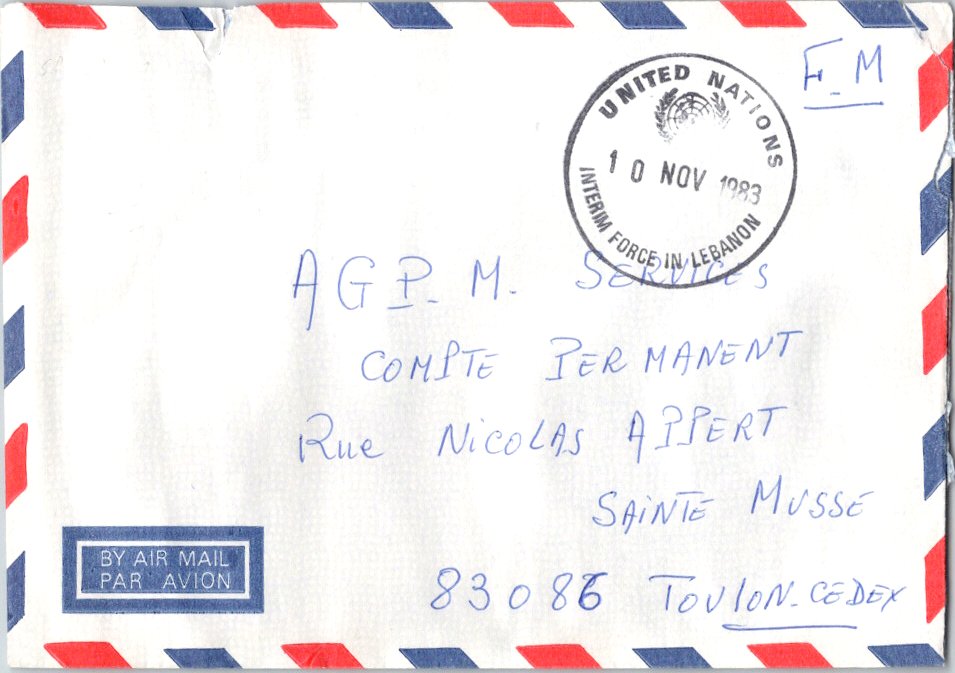 F.M
UNITED NATIONS
10 NOV 1983
INTERIM FORCE IN LEBANON
AGP.M. SERVICES
COMPTE PERMANENT
Rue NICOLAS APPERT
SAINTE MUSSE
83086 TOULON-CEDEX
BY AIR MAIL
PAR AVION